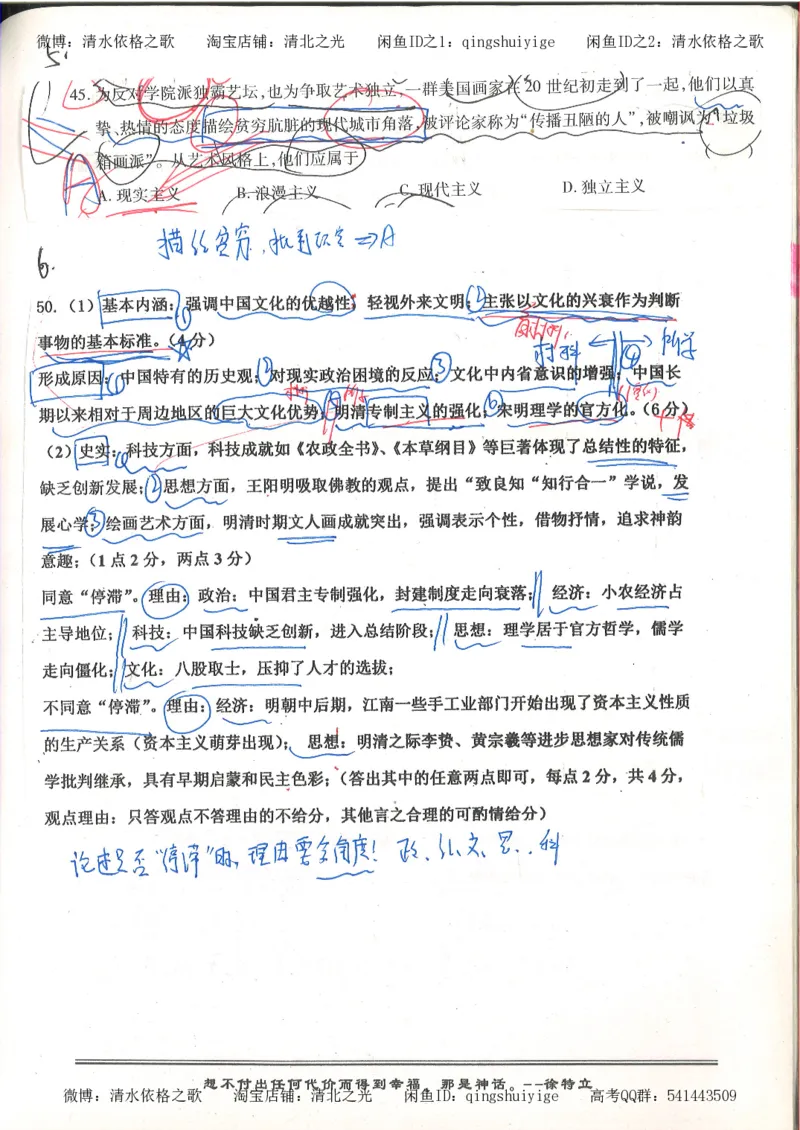 微博：清水依格之歌 淘宝店铺：清北之光 闲鱼ID之1：qingshuiyige 闲鱼ID之2：清水依格之歌
5.
45. 为反对学院派独霸艺坛,也为争取艺术独立,一群美国画家在 20 世纪初走到了一起,他们以真
挚、热情的态度描绘贫穷肮脏的现代城市角落,被评论家称为“传播丑陋的人”,被嘲讽为“垃圾
箱画派”。从艺术风格上,他们应属于
( )
A
A. 现实主义 B. 浪漫主义 C. 现代主义 D. 独立主义
描绘贫穷、批判现实⇒A
6.
50.（1）基本内涵：强调中国文化的优越性；轻视外来文明；主张以文化的兴衰作为判断
事物的基本标准。（4 分）
材料 ← → 所学
形成原因：中国特有的历史观；对现实政治困境的反应；文化中内省意识的增强；中国长
期以来相对于周边地区的巨大文化优势；明清专制主义的强化；宋明理学的官方化。（6 分）
（2）史实：科技方面，科技成就如《农政全书》、《本草纲目》等巨著体现了总结性的特征，
缺乏创新发展；思想方面，王阳明吸取佛教的观点，提出“致良知“知行合一”学说，发
展心学；绘画艺术方面，明清时期文人画成就突出，强调表示个性，借物抒情，追求神韵
意趣；（1 点 2 分，两点 3 分）
同意“停滞”。理由：政治：中国君主专制强化，封建制度走向衰落； 经济：小农经济占
主导地位； 科技：中国科技缺乏创新，进入总结阶段； 思想：理学居于官方哲学，儒学
走向僵化； 文化：八股取士，压抑了人才的选拔；
不同意“停滞”。理由：经济：明朝中后期，江南一些手工业部门开始出现了资本主义性质
的生产关系（资本主义萌芽出现）； 思想：明清之际李贽、黄宗羲等进步思想家对传统儒
学批判继承，具有早期启蒙和民主色彩；（答出其中的任意两点即可，每点 2 分，共 4 分，
观点理由：只答观点不答理由的不给分，其他言之合理的可酌情给分）
论述是否“停滞”时，理由要全角度！政、经、文、思、科
想不付出任何代价而得到幸福，那是神话。--徐特立
微博：清水依格之歌 淘宝店铺：清北之光 闲鱼ID：qingshuiyige 高考QQ群：541443509